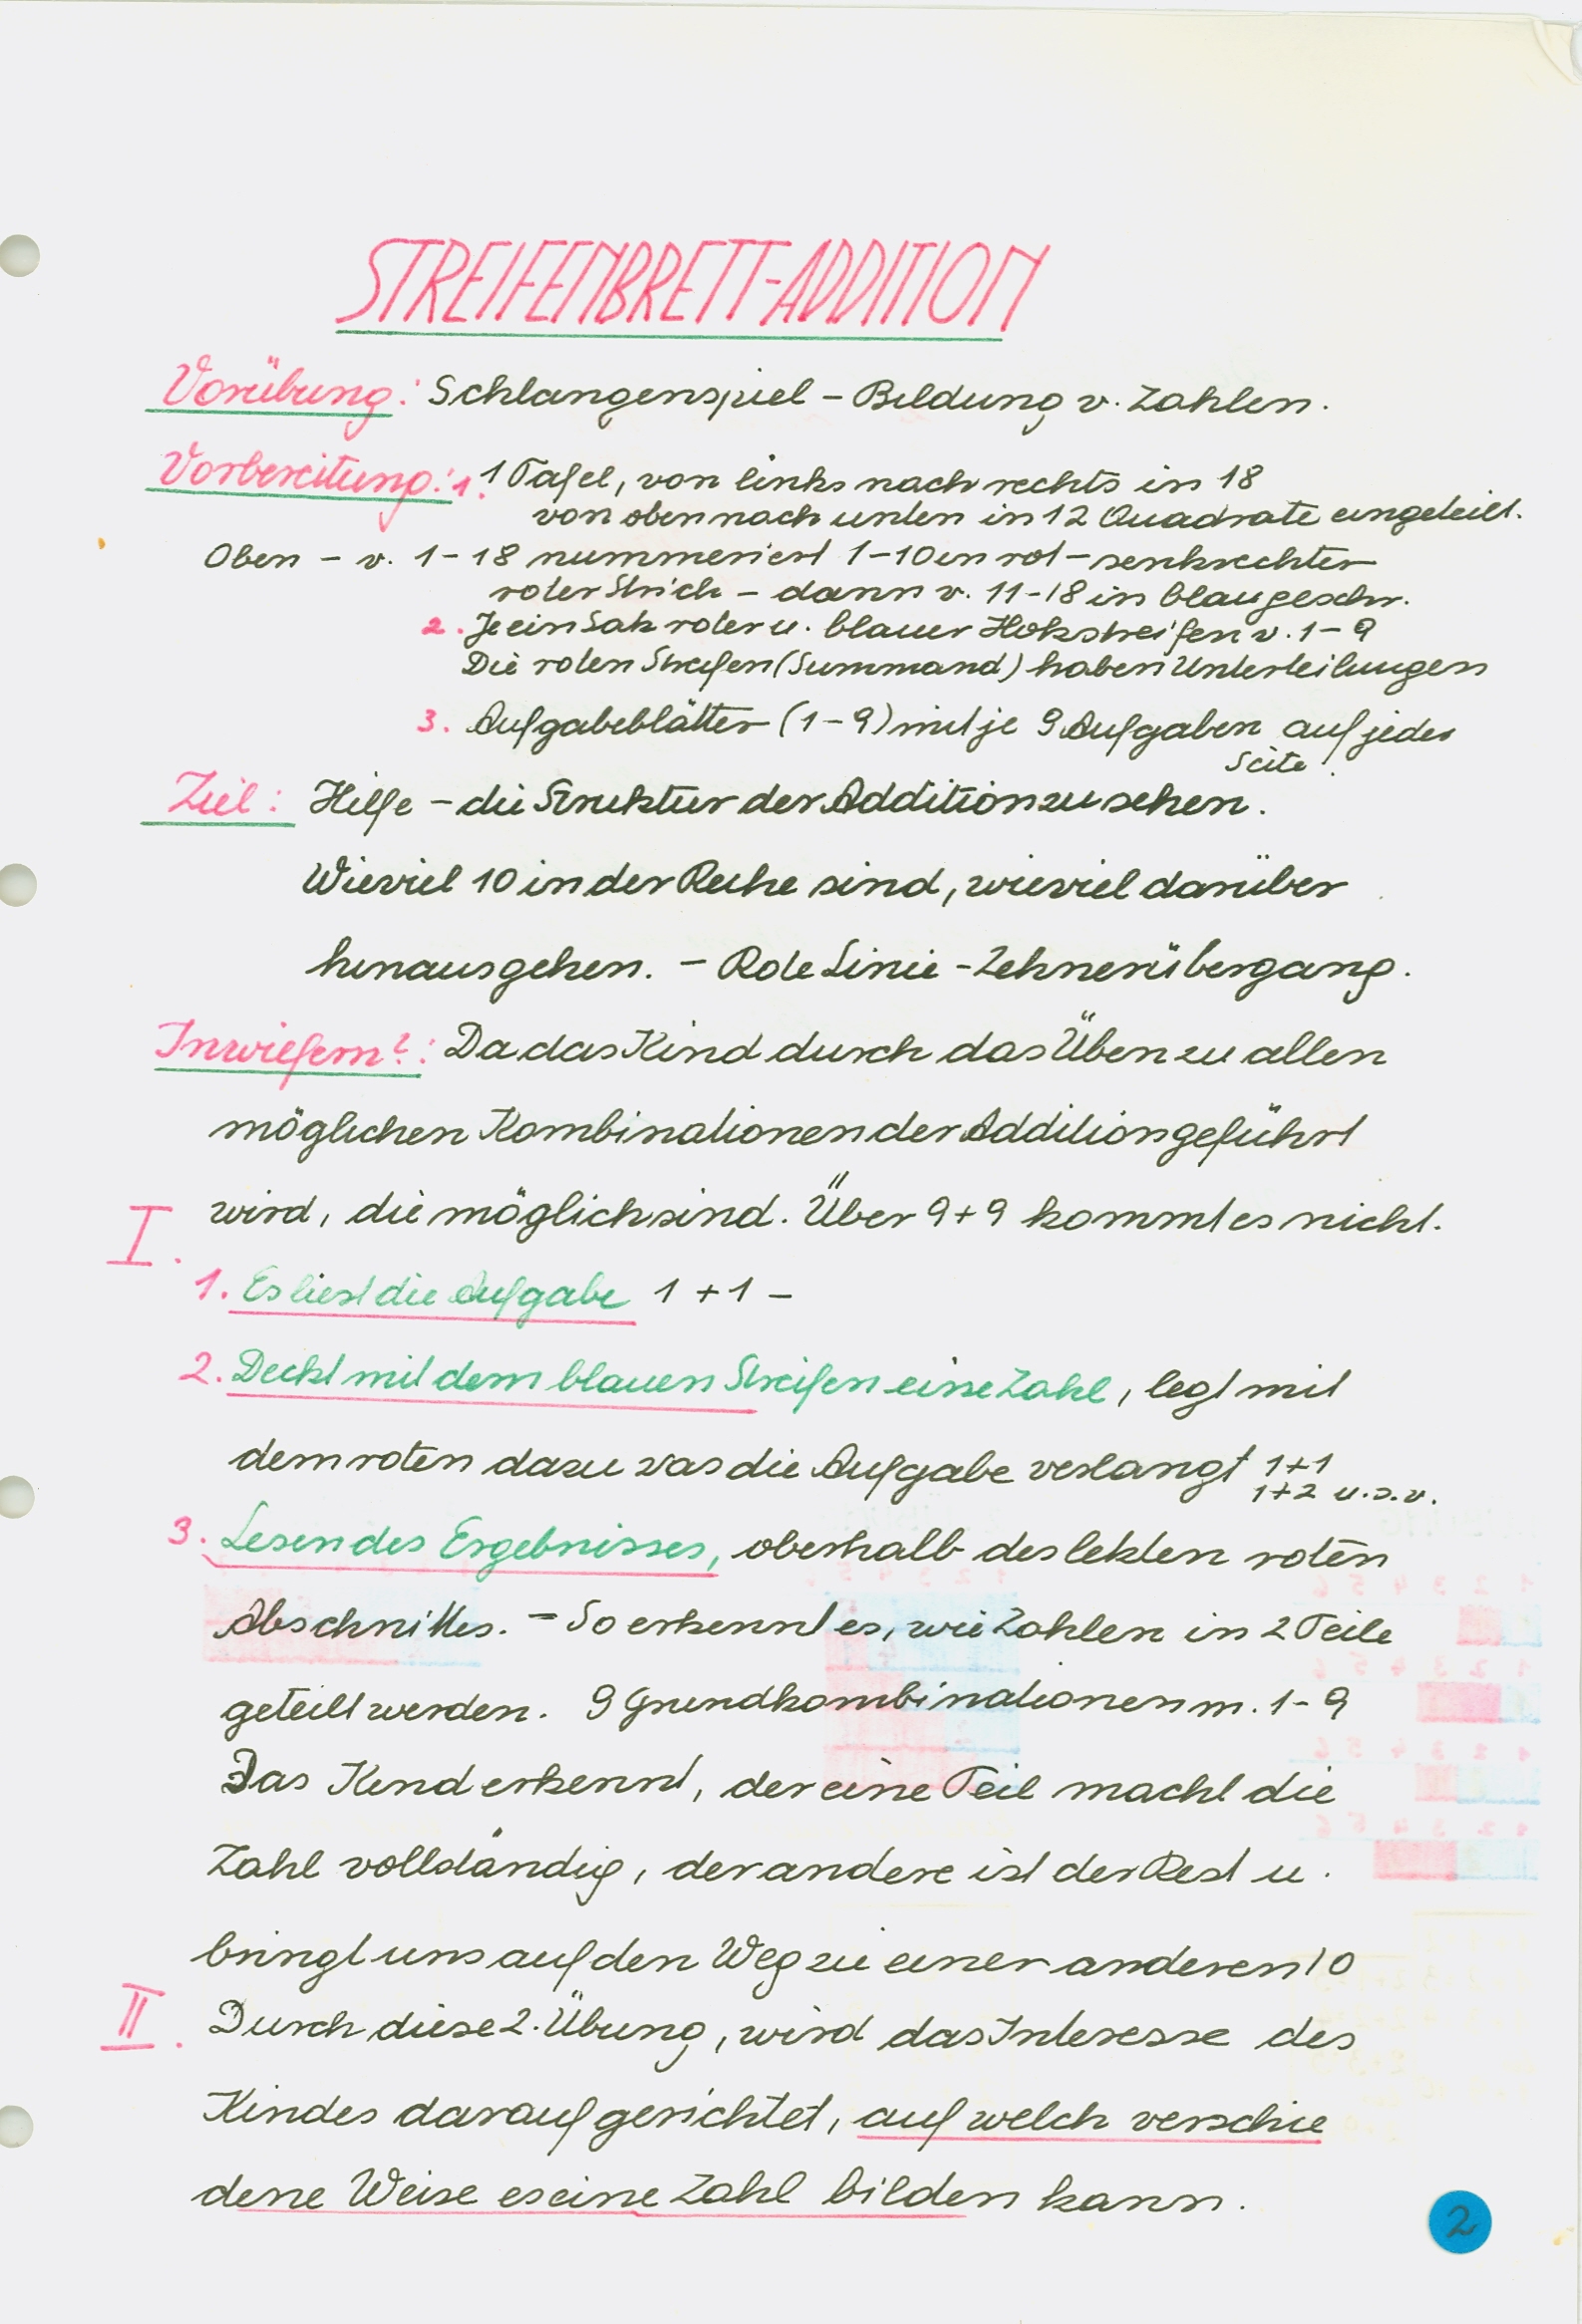 STREIFENBRETT-ADDITION
Vorübung: Schlangenspiel – Bildung v. Zahlen.
Vorbereitung: 1. 1 Tafel, von links nach rechts in 18
von oben nach unten in 12 Quadrate eingeteilt.
Oben – v. 1–18 nummeriert 1–10 in rot – senkrechter
roter Strich – dann v. 11–18 in blau geschr.
2. Je ein Satz roter u. blauer Holzstreifen v. 1–9
Die roten Streifen (Summand) haben Unterteilungen
3. Aufgabeblätter (1–9) mit je 9 Aufgaben auf jeder
Seite.
Ziel: Hilfe – die Struktur der Addition zu sehen.
Wieviel 10 in der Reihe sind, wieviel darüber
hinausgehen. – Rote Linie - Zehnerübergang.
Inwiefern?: Da das Kind durch das Üben zu allen
möglichen Kombinationen der Addition geführt
wird, die möglich sind. Über 9+9 kommt es nicht.
I.
1. Es liest die Aufgabe 1 + 1 –
2. Deckt mit dem blauen Streifen eine Zahl, legt mit
dem roten dazu was die Aufgabe verlangt 1+1
1+2 u.s.w.
3. Lesen des Ergebnisses, oberhalb des letzten roten
Abschnittes. – So erkennt es, wie Zahlen in 2 Teile
geteilt werden. 9 Grundkombinationen m. 1–9
Das Kind erkennt, der eine Teil macht die
Zahl vollständig, der andere ist der Rest u.
bringt uns auf den Weg zu einer anderen 10
II. Durch diese 2. Übung, wird das Interesse des
Kindes darauf gerichtet, auf welch verschie
dene Weise es eine Zahl bilden kann.
2